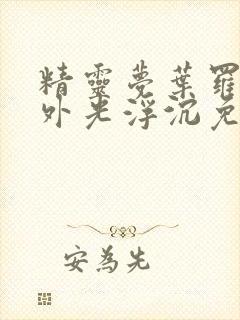 精靈夢葉羅
外光浮沉免
安為先